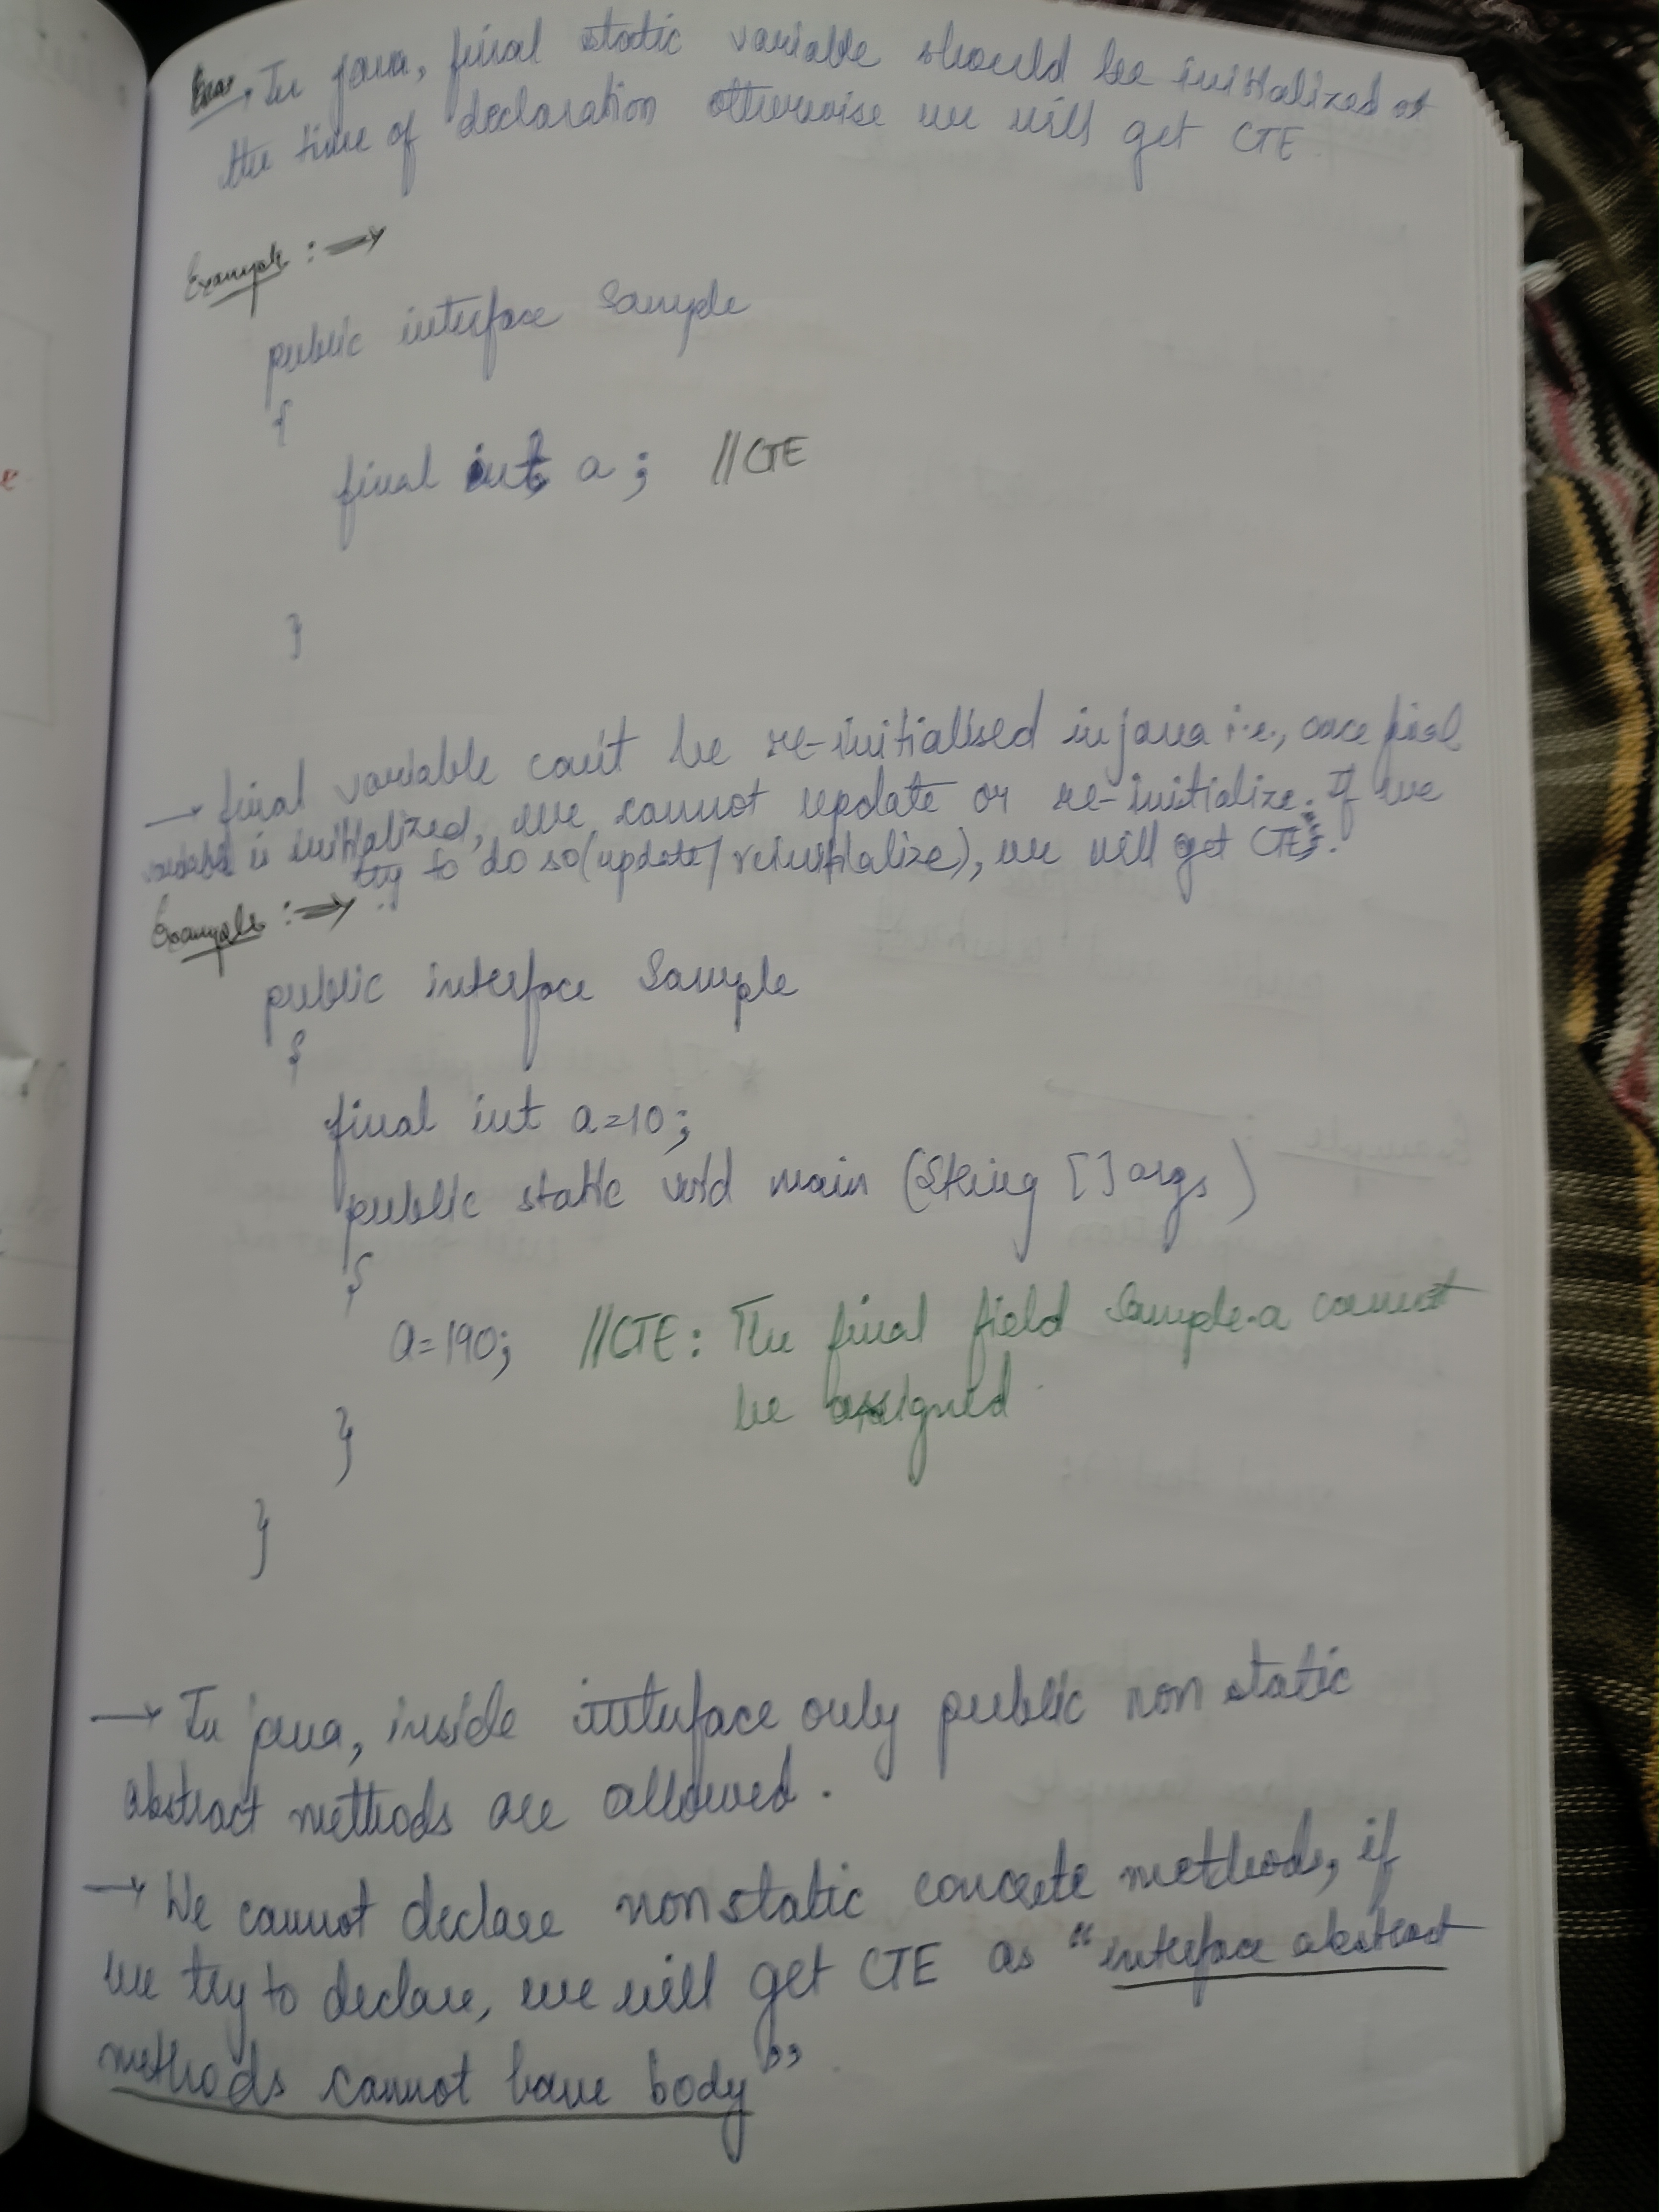 In java, final static variable should be initialized at
the time of declaration otherwise we will get CTE.
Example :⇒
public interface Sample
{
final int a ; //CTE
}
→ final variable can't be re-initialised in java i.e., once final
variable is initialized, we cannot update or re-initialize. If we
try to do so(update/reinitialize), we will get CTE.
Example :⇒
public interface Sample
{
final int a=10;
public static void main (String [] args)
{
a=190; //CTE: The final field Sample.a cannot
be assigned
}
}
→ In java, inside interface only public non static
abstract methods are allowed.
→ We cannot declare non static concrete methods, if
we try to declare, we will get CTE as "interface abstract
methods cannot have body"